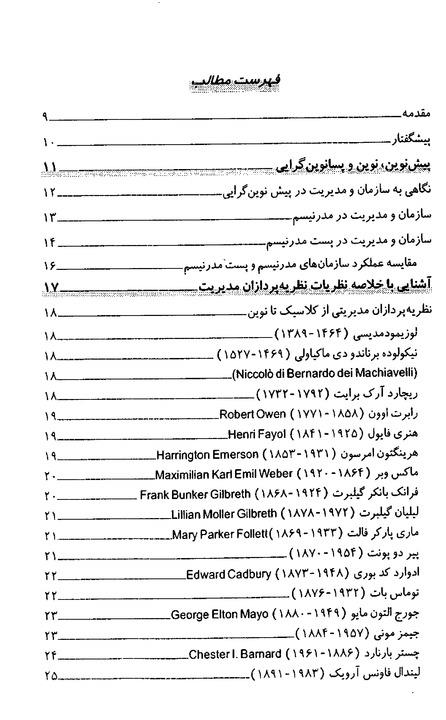 فهرست مطالب
مقدمه ۹
پیشگفتار ۱۰
پیش‌نوین، نوین و پسانوین‌گرایی ۱۱
نگاهی به سازمان و مدیریت در پیش نوین‌گرایی ۱۲
سازمان و مدیریت در مدرنیسم ۱۳
سازمان و مدیریت در پست مدرنیسم ۱۴
مقایسه عملکرد سازمان‌های مدرنیسم و پست مدرنیسم ۱۶
آشنایی با خلاصه نظریات نظریه‌پردازان مدیریت ۱۷
نظریه‌پردازان مدیریتی از کلاسیک تا نوین ۱۸
لوزیمودمدیسی (۱۴۶۴-۱۳۸۹) ۱۸
نیکولوده برناندو دی ماکیاولی (۱۴۶۹-۱۵۲۷) ۱۸
(Niccolò di Bernardo dei Machiavelli) ۱۸
ریچارد آرک برایت (۱۷۹۲-۱۷۳۲) ۱۸
رابرت اوون (۱۸۵۸-۱۷۷۱) Robert Owen ۱۹
هنری فایول (۱۹۲۵-۱۸۴۱) Henri Fayol ۱۹
هرینگتون امرسون (۱۹۳۱-۱۸۵۳) Harrington Emerson ۱۹
ماکس وبر (۱۸۶۴-۱۹۲۰) Maximilian Karl Emil Weber ۲۰
فرانک بانکر گیلبرت (۱۹۲۴-۱۸۶۸) Frank Bunker Gilbreth ۲۰
لیلیان گیلبرت (۱۹۷۲-۱۸۷۸) Lillian Moller Gilbreth ۲۱
ماری پارکر فالت (۱۹۳۳-۱۸۶۹) Mary Parker Follett ۲۱
پیر دو پونت (۱۹۵۴-۱۸۷۰) ۲۱
ادوارد کد بوری (۱۹۴۸-۱۸۷۳) Edward Cadbury ۲۲
توماس بات (۱۹۳۲-۱۸۷۶) ۲۲
جورج التون مایو (۱۹۴۹-۱۸۸۰) George Elton Mayo ۲۳
جیمز مونی (۱۹۵۷-۱۸۸۴) ۲۳
چستر بارنارد (۱۸۸۶-۱۹۶۱) Chester I. Barnard ۲۴
لیندال فاونس آرویک (۱۹۸۳-۱۸۹۱) ۲۵